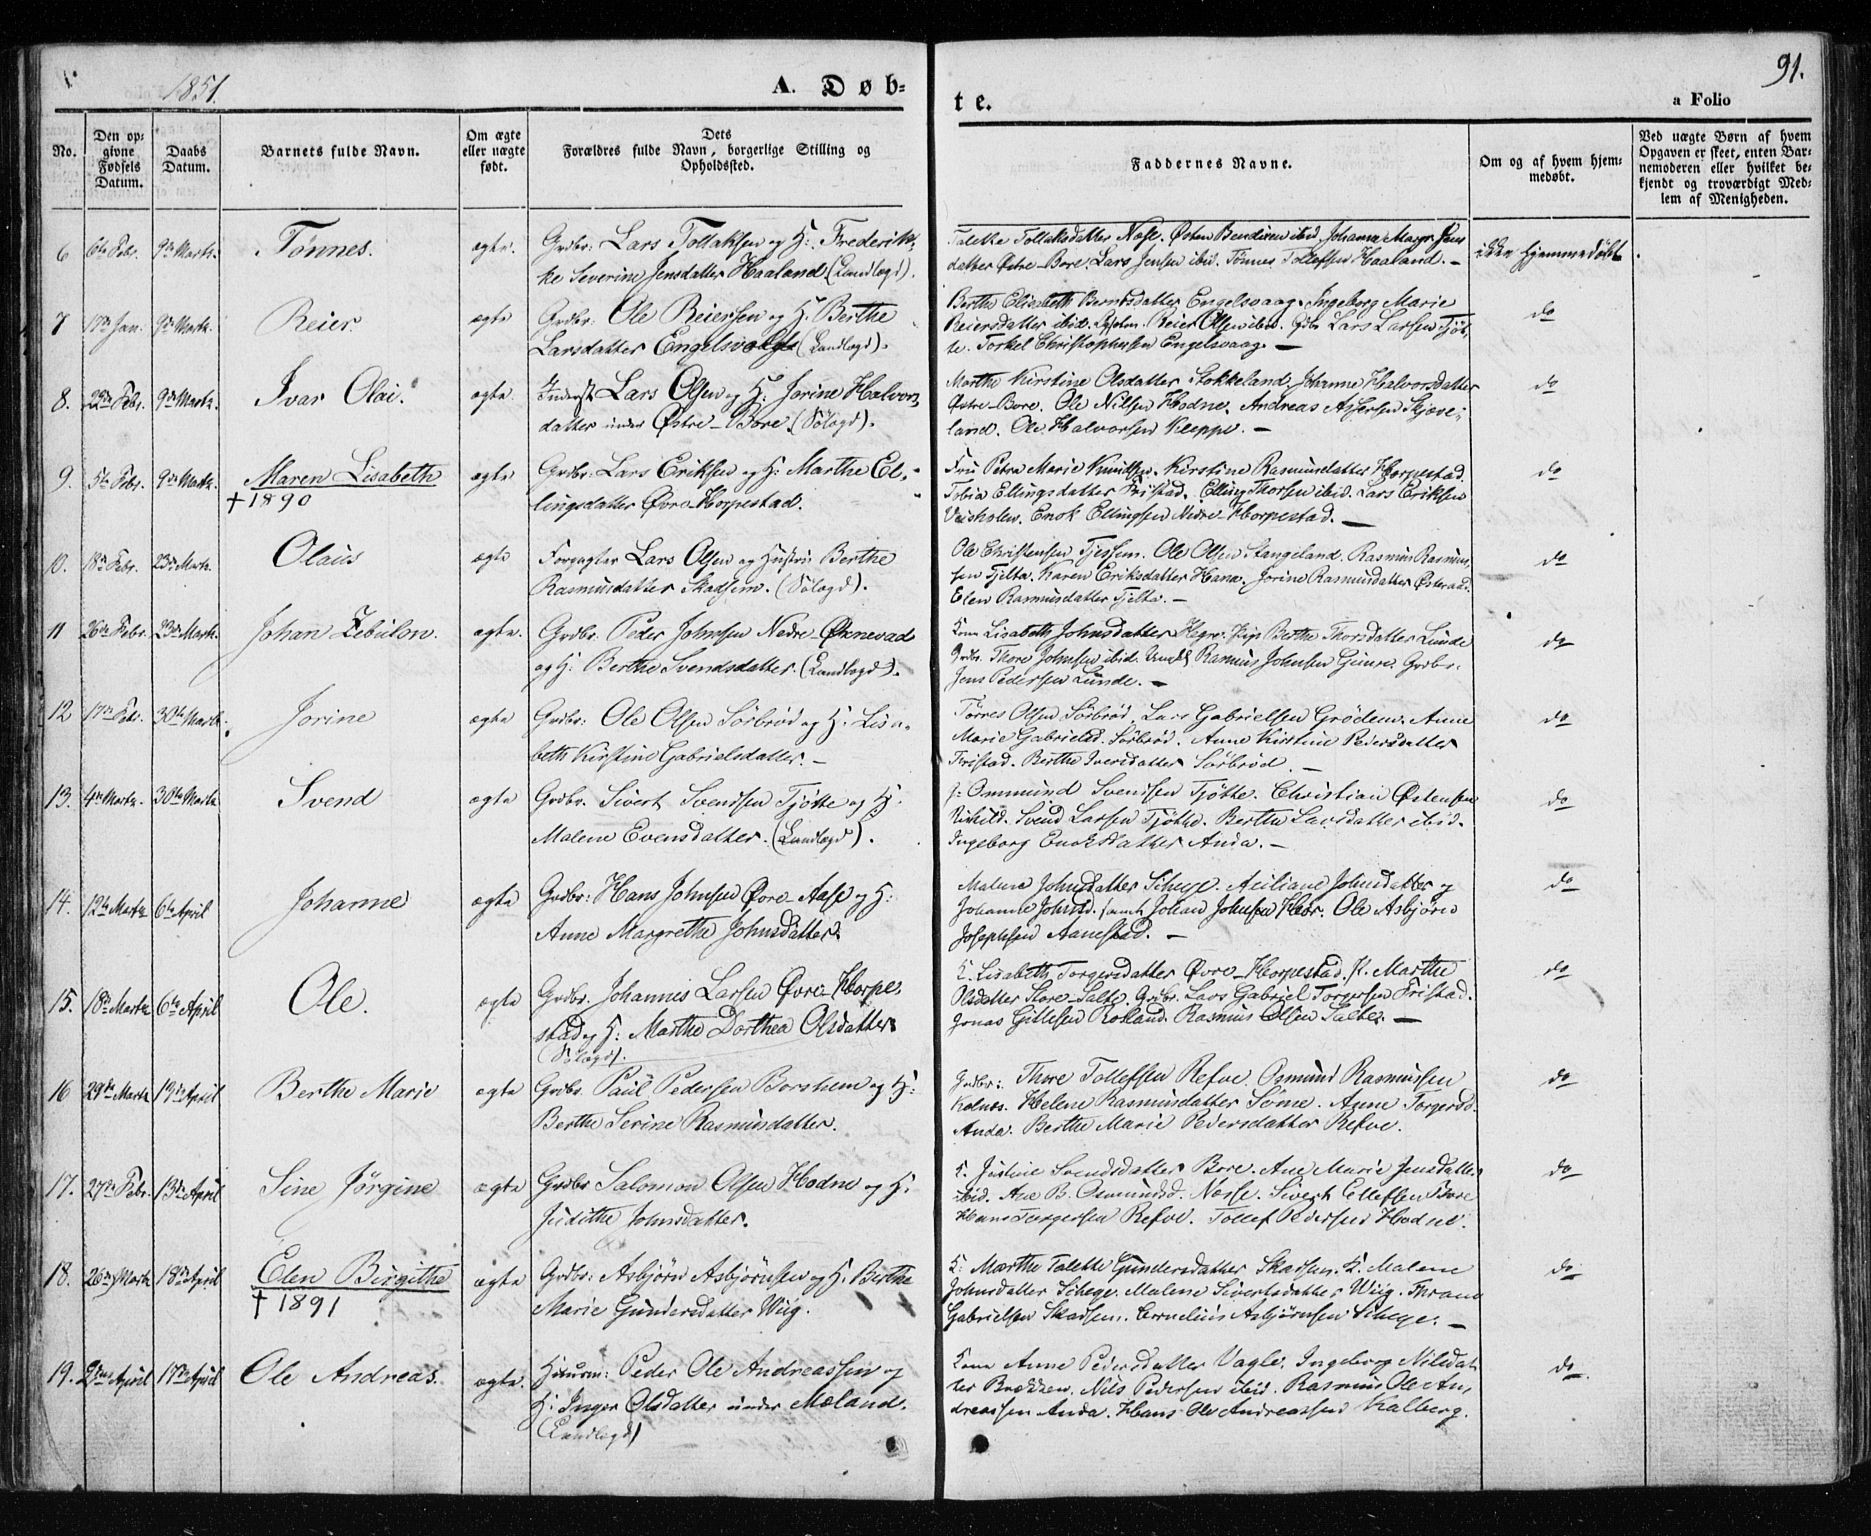 1851.
A. Døb-
te.
91.
a Folio
No.
Den op-
givne
Fødsels
Datum.
Daabs
Datum.
Barnets fulde Navn.
Om ægte
eller uægte
født.
Dets
Forældres fulde Navn, borgerlige Stilling og
Opholdssted.
Faddernes Navne.
Om og af hvem hjem-
medøbt.
Ved uægte Børn af hvem
Opgaven er skeet, enten Bar-
nemoderen eller hvilket be-
kjendt og troværdigt Med-
lem af Menigheden.
6 6te Febr. 9de Marts. Tönnes. ægte. Grdbr: Lars Tollaksen og H: Frederik-
ke Severine Jensdatter Haaland. (Landlogd).
Talette Tollaksdatter Næse. Østen Bendixen ibid. Johanna Margr. Jens
datter Østre-Bore. Lars Jensen ibid. Tønnes Tollefsen Haaland. –
ikke hjemmedøbt.
7 17de Jan. 9de Marts. Reier. ægte Grdbr: Ole Reiersen og H. Berthe
Larsdatter Engelsvaag (Landlogd).
Berthe Elisabeth Berntsdatter Engelsvaag. Ingeborg Marie
Reiersdatter ibid. Reier Olsen ibid. Gdbr Lars Larsen Tjöt-
te. Torkel Christophersen Engelsvaag. –
do
8. 22de Febr. 9de Marts. Ivar Olai. ægte. Inderst Lars Olsen og H: Jorine Halvors
datter under Østre-Bore. (Sölogd).
Marthe Kirstine Olsdatter Stokkeland. Johanne Halvorsdatter
Østre-Bore. Ole Nilsen Hodne. Andreas Assersen Skjæve-
land. Ole Halvorsen Kleppe. –
do
9. 5te Febr. 9de Marts. Maren Lisabeth ægte Grdbr: Lars Eriksen og H: Marthe El-
† 1890
lingsdatter Øvre-Horpestad.
Fru Petra Marie Knudsen. Kirstine Rasmusdatter Horpestad.
Tobia Ellingsdatter Fristad. Elling Thorsen ibid. Lars Eriksen
Enok Ellingsen Nedre-Horpestad. –
do
10. 18de Febr. 23de Marts. Olaus ægte Forpagter Lars Olsen og Hustru Berthe
Rasmusdatter Skadsem. (Sölogd).
Ole Christensen Tjessem. Ole Olsen Stangeland. Rasmus Rasmus-
sen Tjelta. Karen Eriksdatter Hana. Jorine Rasmusdatter Østeraad.
Elen Rasmusdatter Tjelta. –
do
11 26de Febr. 23de Marts. Johan Zebulon. ægte. Grdbr. Peder Johnsen Nedre-Øxnevad
og H: Berthe Svendsdatter. (Landlogd).
Kone Lisabeth Johnsdatter Hegre. Pige Berthe Thorsdatter Lunde
Grdbr. Thore Johnsen ibid. Rasmus Johnsen Gimre. Grdbr.
Jens Pedersen Lunde. –
do
12 17de Febr. 30te Marts. Jorine ægte Grdbr: Ole Olsen Sörbröd og H. Lisa-
beth Kirstine Gabrielsdatter. –
Törres Olsen Sörbröd. Lars Gabrielsen Grödem. Anne
Marie Gabrielsd. Sörbröd. Anne Kirstine Pedersdatter
Fristad. Berthe Iversdatter Sörbröd –
do
13. 4de Marts. 30te Marts Svend ægte Grdbr. Sivert Svendsen Tjötte og H:
Malene Evensdatter. (Landlogd).
Ommund Svendsen Tjötte. Christian Østensen
Svend Larsen Tjötte. Berthe Larsdatter ibid.
Ingeborg Enoksdatter Anda. –
do
14. 12te Marts 6te April Johanne ægte Grdbr: Hans Johnsen Øvre-Aase og H:
Anne Margrethe Johnsdatter.
Malene Johnsdatter Schege. Johnsdatter og
Johanne Johnsd. samt Johan Johnsen Ole Asbjörn
Josephsen Aanestad. –
do
15. 18de Marts 6te April Ole. ægte Grdbr. Johannes Larsen Øvre-Horpe-
stad og H: Marthe Dorthea Olsdatter
(Sölogd).
K. Lisabeth Torgersdatter Øvre-Horpestad. P. Marthe
Olsdatter Store-Salte. Grdbr. Lars Gabriel Torgersen Fristad.
Jonas Gittesen Roland. Rasmus Olsen Salte. –
do
16 29de Marts 13de April Berthe Marie ægte Grdbr. Paul Pedersen Borshem og H:
Berthe Serine Rasmusdatter.
Grdbr: Thore Tollefsen Refve. Osmund Rasmussen
Kolnes. Helene Rasmusdatter Söme. Anne Torgersd.
Anda. Berthe Marie Pedersdatter Refve.
do
17. 27de Febr. 13de April Sine Jörgine ægte Grdbr Salomon Olsen Hodne og H:
Judithe Johnsdatter.
K. Justine Svendsdatter Bore. Ane Marie Jensdatter
ibid. Ane B. Osmundsd. Næsse. Sivert Ellefsen Bore
Hans Torgersen Refve. Tollef Pedersen Hodne.
do
18. 26de Marts 18de April Elen Birgithe ægte Grdbr: Asbjörn Asbjörnsen og H. Berthe
† 1891
Marie Gundersdatter Wiig.
K: Marthe Talette Gundersdatter Skadsem. K. Malene
Johnsdatter Schege. Malene Sivertsdatter Wiig. Thrane
Gabrielsen Skadsem. Cornelius Asbjörnsen Schege. –
do
19. 2den April 17de April Ole Andreas. ægte. Huusm: Peder Ole Andreassen og
H: Inger Olsdatter under Mæland.
(Landlogd)
Kone Anne Pedersdatter Vagle. Ingeborg Nilsdat-
ter Brækken. Nils Pedersen ibid. Rasmus Ole An-
dreassen Anda. Hans Ole Andreassen Kalberg.
do